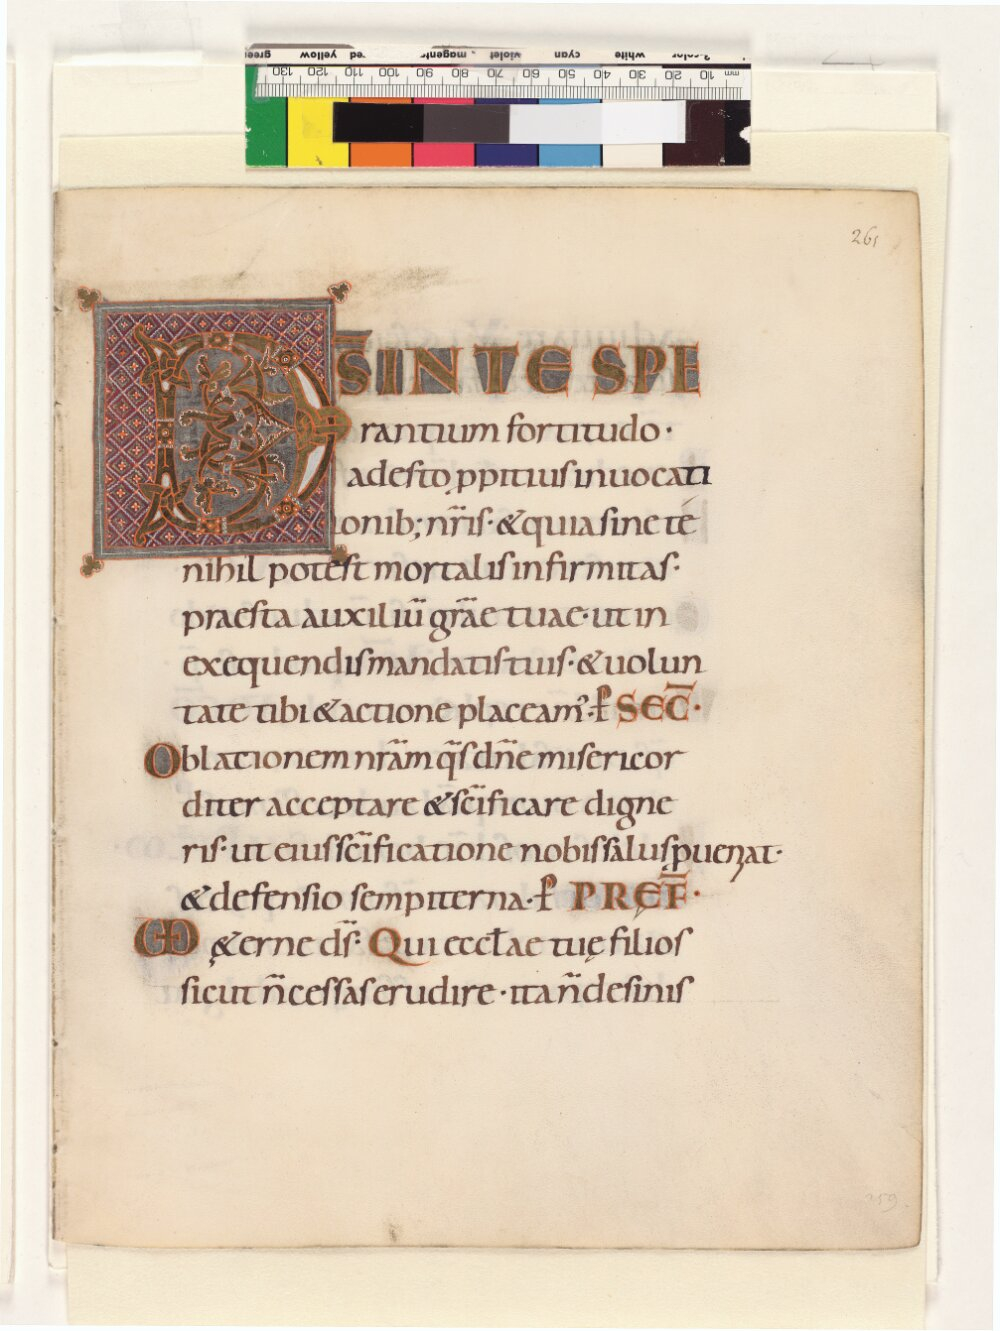 green yellow red magenta violet cyan white 3-color
mm 10 20 30 40 50 60 70 80 90 100 110 120 130
261
DS̄ IN TE SPE
rantium fortitudo·
adesto ꝓpitiuſ inuocati
ionib; nr̄iſ· & quia ſine te
nihil poteſt mortaliſ infirmitaſ·
praeſta auxiliū gr̄ae tuae· ut in
exequendiſ mandatiſ tuiſ· & uolun
tate tibi & actione placeam᾽· ꝑ SEC̄·
Oblationem nr̄am q̄ſ dn̄e miſericor
diter acceptare & ſc̄ificare digne
riſ· ut eiuſ ſc̄ificatione nobiſ ſaluſ ꝓueniat·
& defenſio ſempiterna· ꝑ PREF̄·
VD &erne dſ̄· Qui eccƚae tuę filioſ
ſicut n̄ ceſſaſ erudire· ita n̄ deſiniſ
259